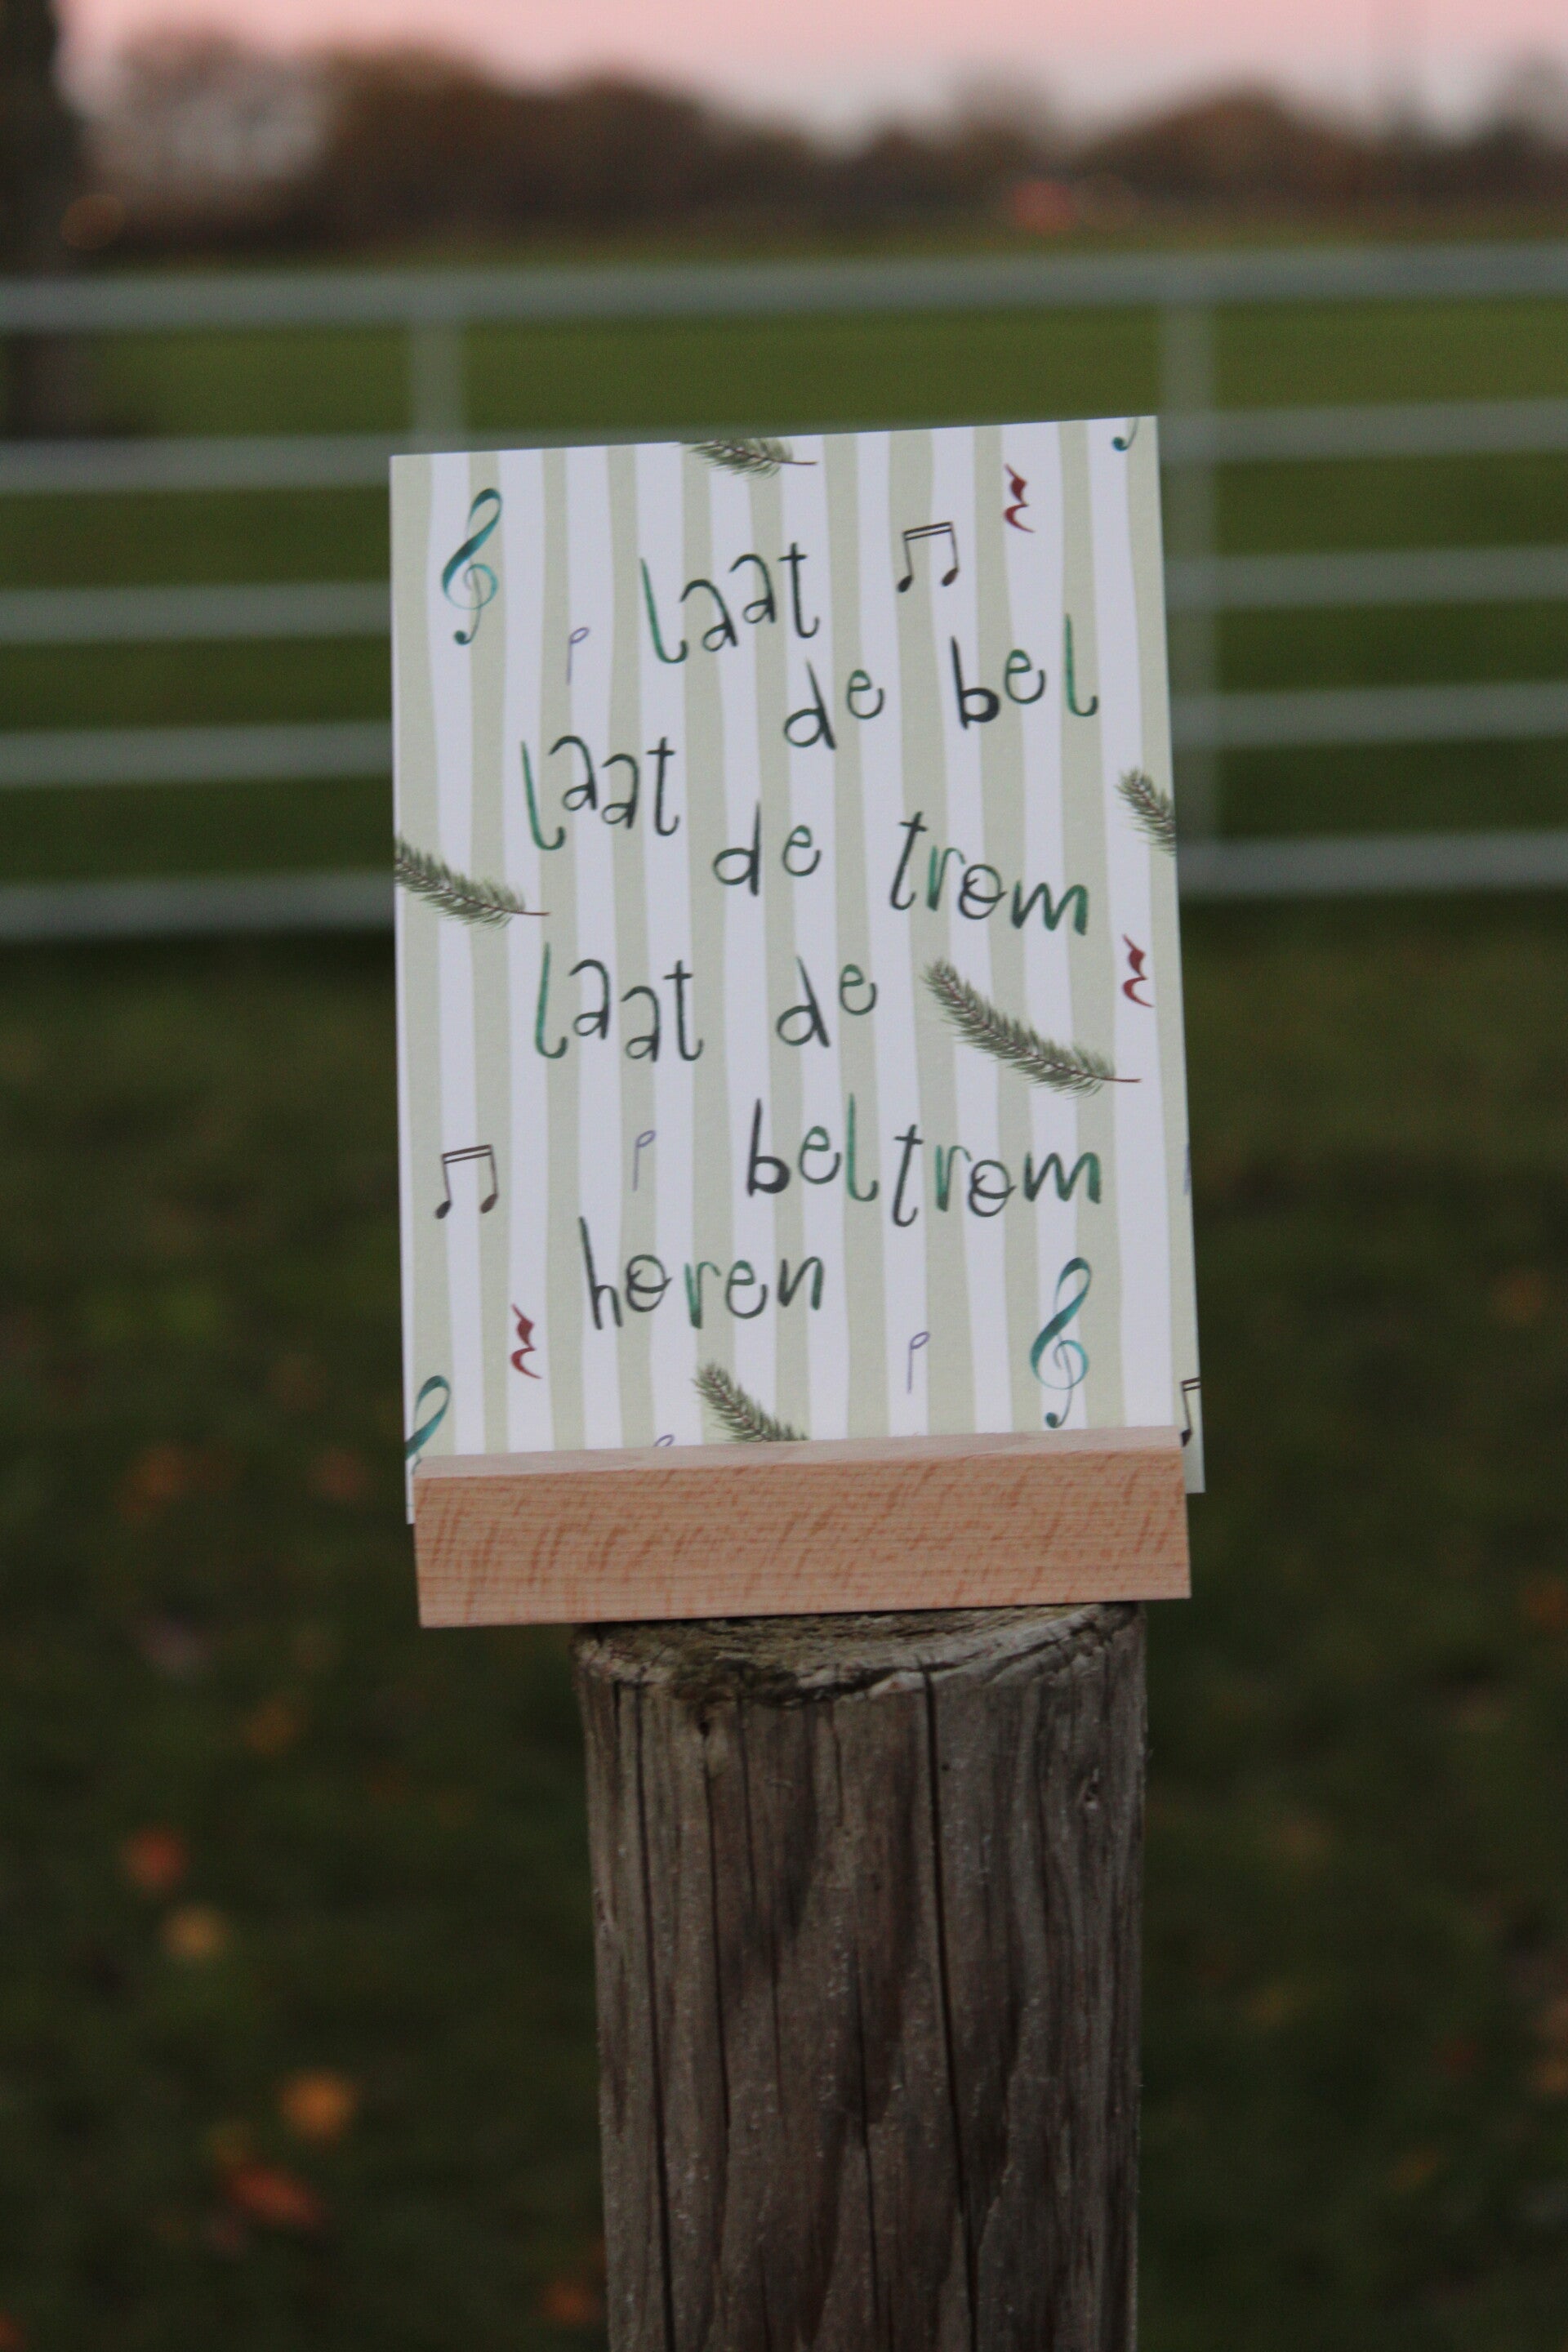 laat
de bel
laat
de trom
laat de
beltrom
horen